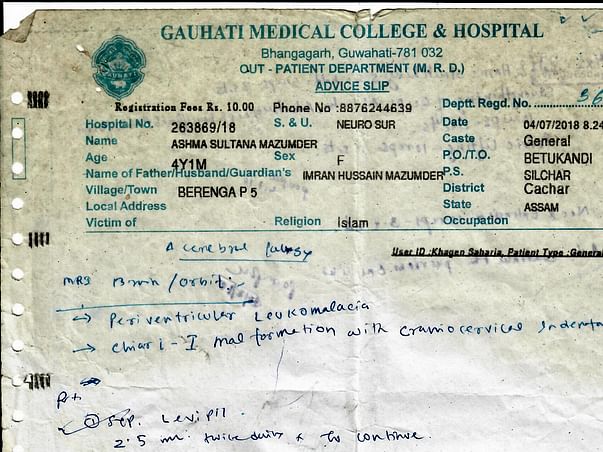 GAUHATI MEDICAL COLLEGE & HOSPITAL
Bhangagarh, Guwahati-781 032
OUT - PATIENT DEPARTMENT (M. R. D.)
ADVICE SLIP
Registration Fees Rs. 10.00 Phone No :8876244639 Deptt. Regd. No. 36
Hospital No. 263869/18 S. & U. NEURO SUR Date 04/07/2018 8.24
Name ASHMA SULTANA MAZUMDER Caste General
Age 4Y1M Sex F P.O./T.O. BETUKANDI
Name of Father/Husband/Guardian's IMRAN HUSSAIN MAZUMDER P.S. SILCHAR
Village/Town BERENGA P 5 District Cachar
Local Address State ASSAM
Victim of Religion Islam Occupation
User ID :Khagen Saharia, Patient Type :General
cerebral palsy
MRI Brain / Orbit :-
→ Periventricular Leukomalacia
→ Chiari - I malformation with craniocervical
① Syp. Levipil
2.5 ml twice daily x to continue.